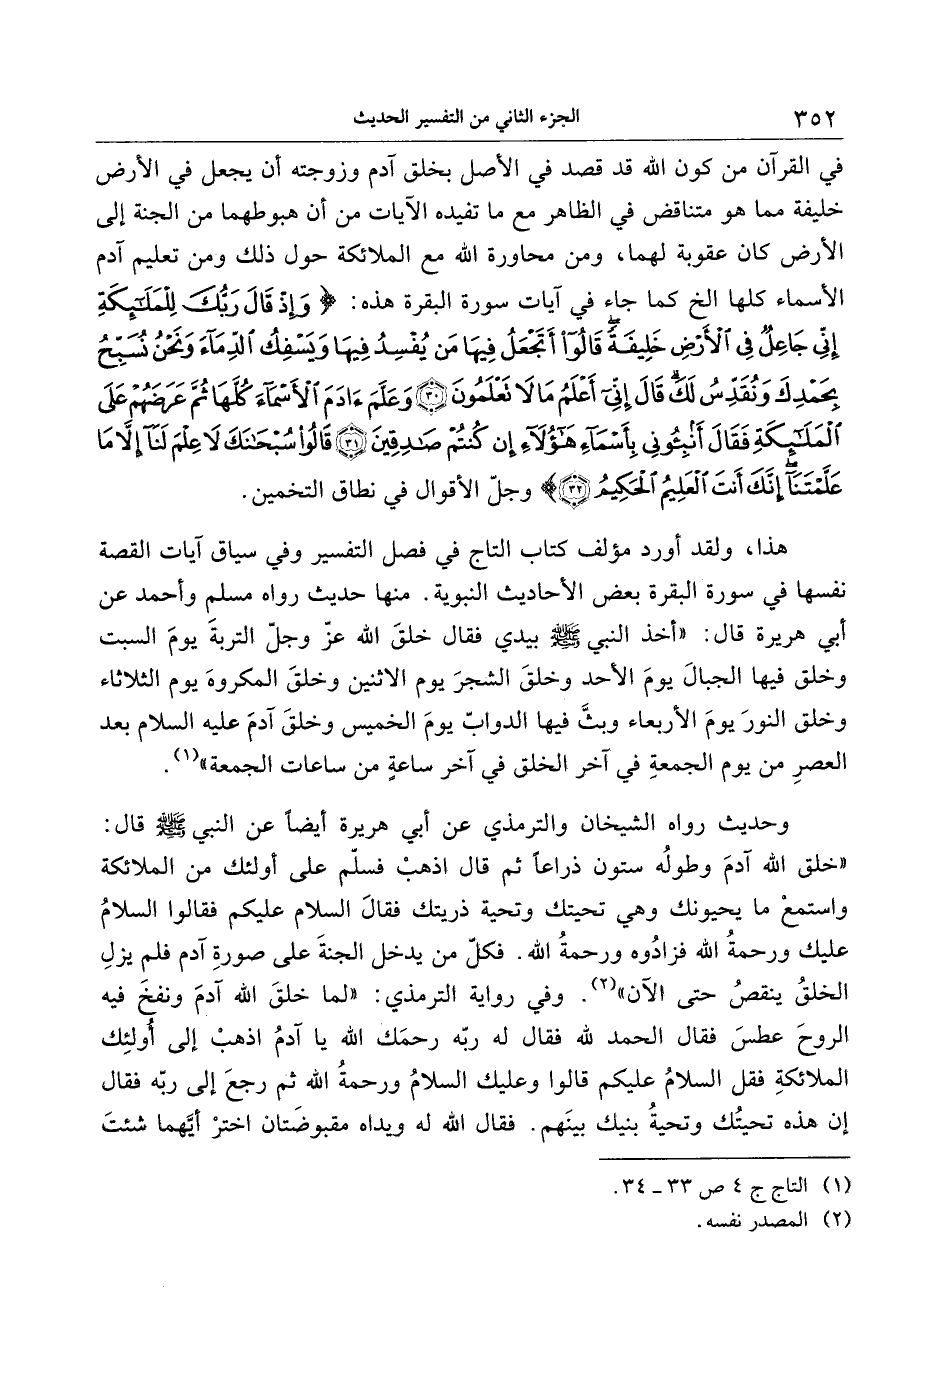 ٣٥٢ الجزء الثاني من التفسير الحديث
في القرآن من كون الله قد قصد في الأصل بخلق آدم وزوجته أن يجعل في الأرض
خليفة مما هو متناقض في الظاهر مع ما تفيده الآيات من أن هبوطهما من الجنة إلى
الأرض كان عقوبة لهما، ومن محاورة الله مع الملائكة حول ذلك ومن تعليم آدم
الأسماء كلها الخ كما جاء في آيات سورة البقرة هذه: ﴿وَإِذْ قَالَ رَبُّكَ لِلْمَلَٰٓئِكَةِ
إِنِّي جَاعِلٌ فِي ٱلْأَرْضِ خَلِيفَةًۖ قَالُوٓا۟ أَتَجْعَلُ فِيهَا مَن يُفْسِدُ فِيهَا وَيَسْفِكُ ٱلدِّمَآءَ وَنَحْنُ نُسَبِّحُ
بِحَمْدِكَ وَنُقَدِّسُ لَكَۖ قَالَ إِنِّيٓ أَعْلَمُ مَا لَا تَعْلَمُونَ ﴿٣٠﴾ وَعَلَّمَ ءَادَمَ ٱلْأَسْمَآءَ كُلَّهَا ثُمَّ عَرَضَهُمْ عَلَى
ٱلْمَلَٰٓئِكَةِ فَقَالَ أَنۢبِـُٔونِي بِأَسْمَآءِ هَٰٓؤُلَآءِ إِن كُنتُمْ صَٰدِقِينَ ﴿٣١﴾ قَالُوا۟ سُبْحَٰنَكَ لَا عِلْمَ لَنَآ إِلَّا مَا
عَلَّمْتَنَآۖ إِنَّكَ أَنتَ ٱلْعَلِيمُ ٱلْحَكِيمُ ﴿٣٢﴾﴾ وجلّ الأقوال في نطاق التخمين.
هذا، ولقد أورد مؤلف كتاب التاج في فصل التفسير وفي سياق آيات القصة
نفسها في سورة البقرة بعض الأحاديث النبوية. منها حديث رواه مسلم وأحمد عن
أبي هريرة قال: «أخذ النبي ﷺ بيدي فقال خلقَ الله عزّ وجلّ التربةَ يومَ السبت
وخلق فيها الجبالَ يومَ الأحد وخلقَ الشجرَ يوم الاثنين وخلقَ المكروهَ يوم الثلاثاء
وخلق النورَ يومَ الأربعاء وبثَّ فيها الدوابّ يومَ الخميس وخلقَ آدمَ عليه السلام بعد
العصرِ من يوم الجمعةِ في آخر الخلق في آخر ساعةٍ من ساعات الجمعة»(١).
وحديث رواه الشيخان والترمذي عن أبي هريرة أيضاً عن النبي ﷺ قال:
«خلق الله آدمَ وطولُه ستون ذراعاً ثم قال اذهبْ فسلّم على أولئك من الملائكة
واستمعْ ما يحيونك وهي تحيتك وتحية ذريتك فقالَ السلام عليكم فقالوا السلامُ
عليك ورحمةُ الله فزادُوه ورحمةُ الله. فكلّ من يدخل الجنةَ على صورةِ آدم فلم يزلِ
الخلقُ ينقصُ حتى الآن»(٢). وفي رواية الترمذي: «لما خلقَ الله آدمَ ونفخَ فيه
الروحَ عطسَ فقال الحمد لله فقال له ربّه رحمَك الله يا آدمُ اذهبْ إلى أُولئِك
الملائكةِ فقل السلامُ عليكم قالوا وعليك السلامُ ورحمةُ الله ثم رجعَ إلى ربّه فقال
إن هذه تحيتُك وتحيةُ بنيك بينَهم. فقال الله له ويداه مقبوضَتان اخترْ أيَّهما شئتَ
(١) التاج ج ٤ ص ٣٣ ـ ٣٤.
(٢) المصدر نفسه.